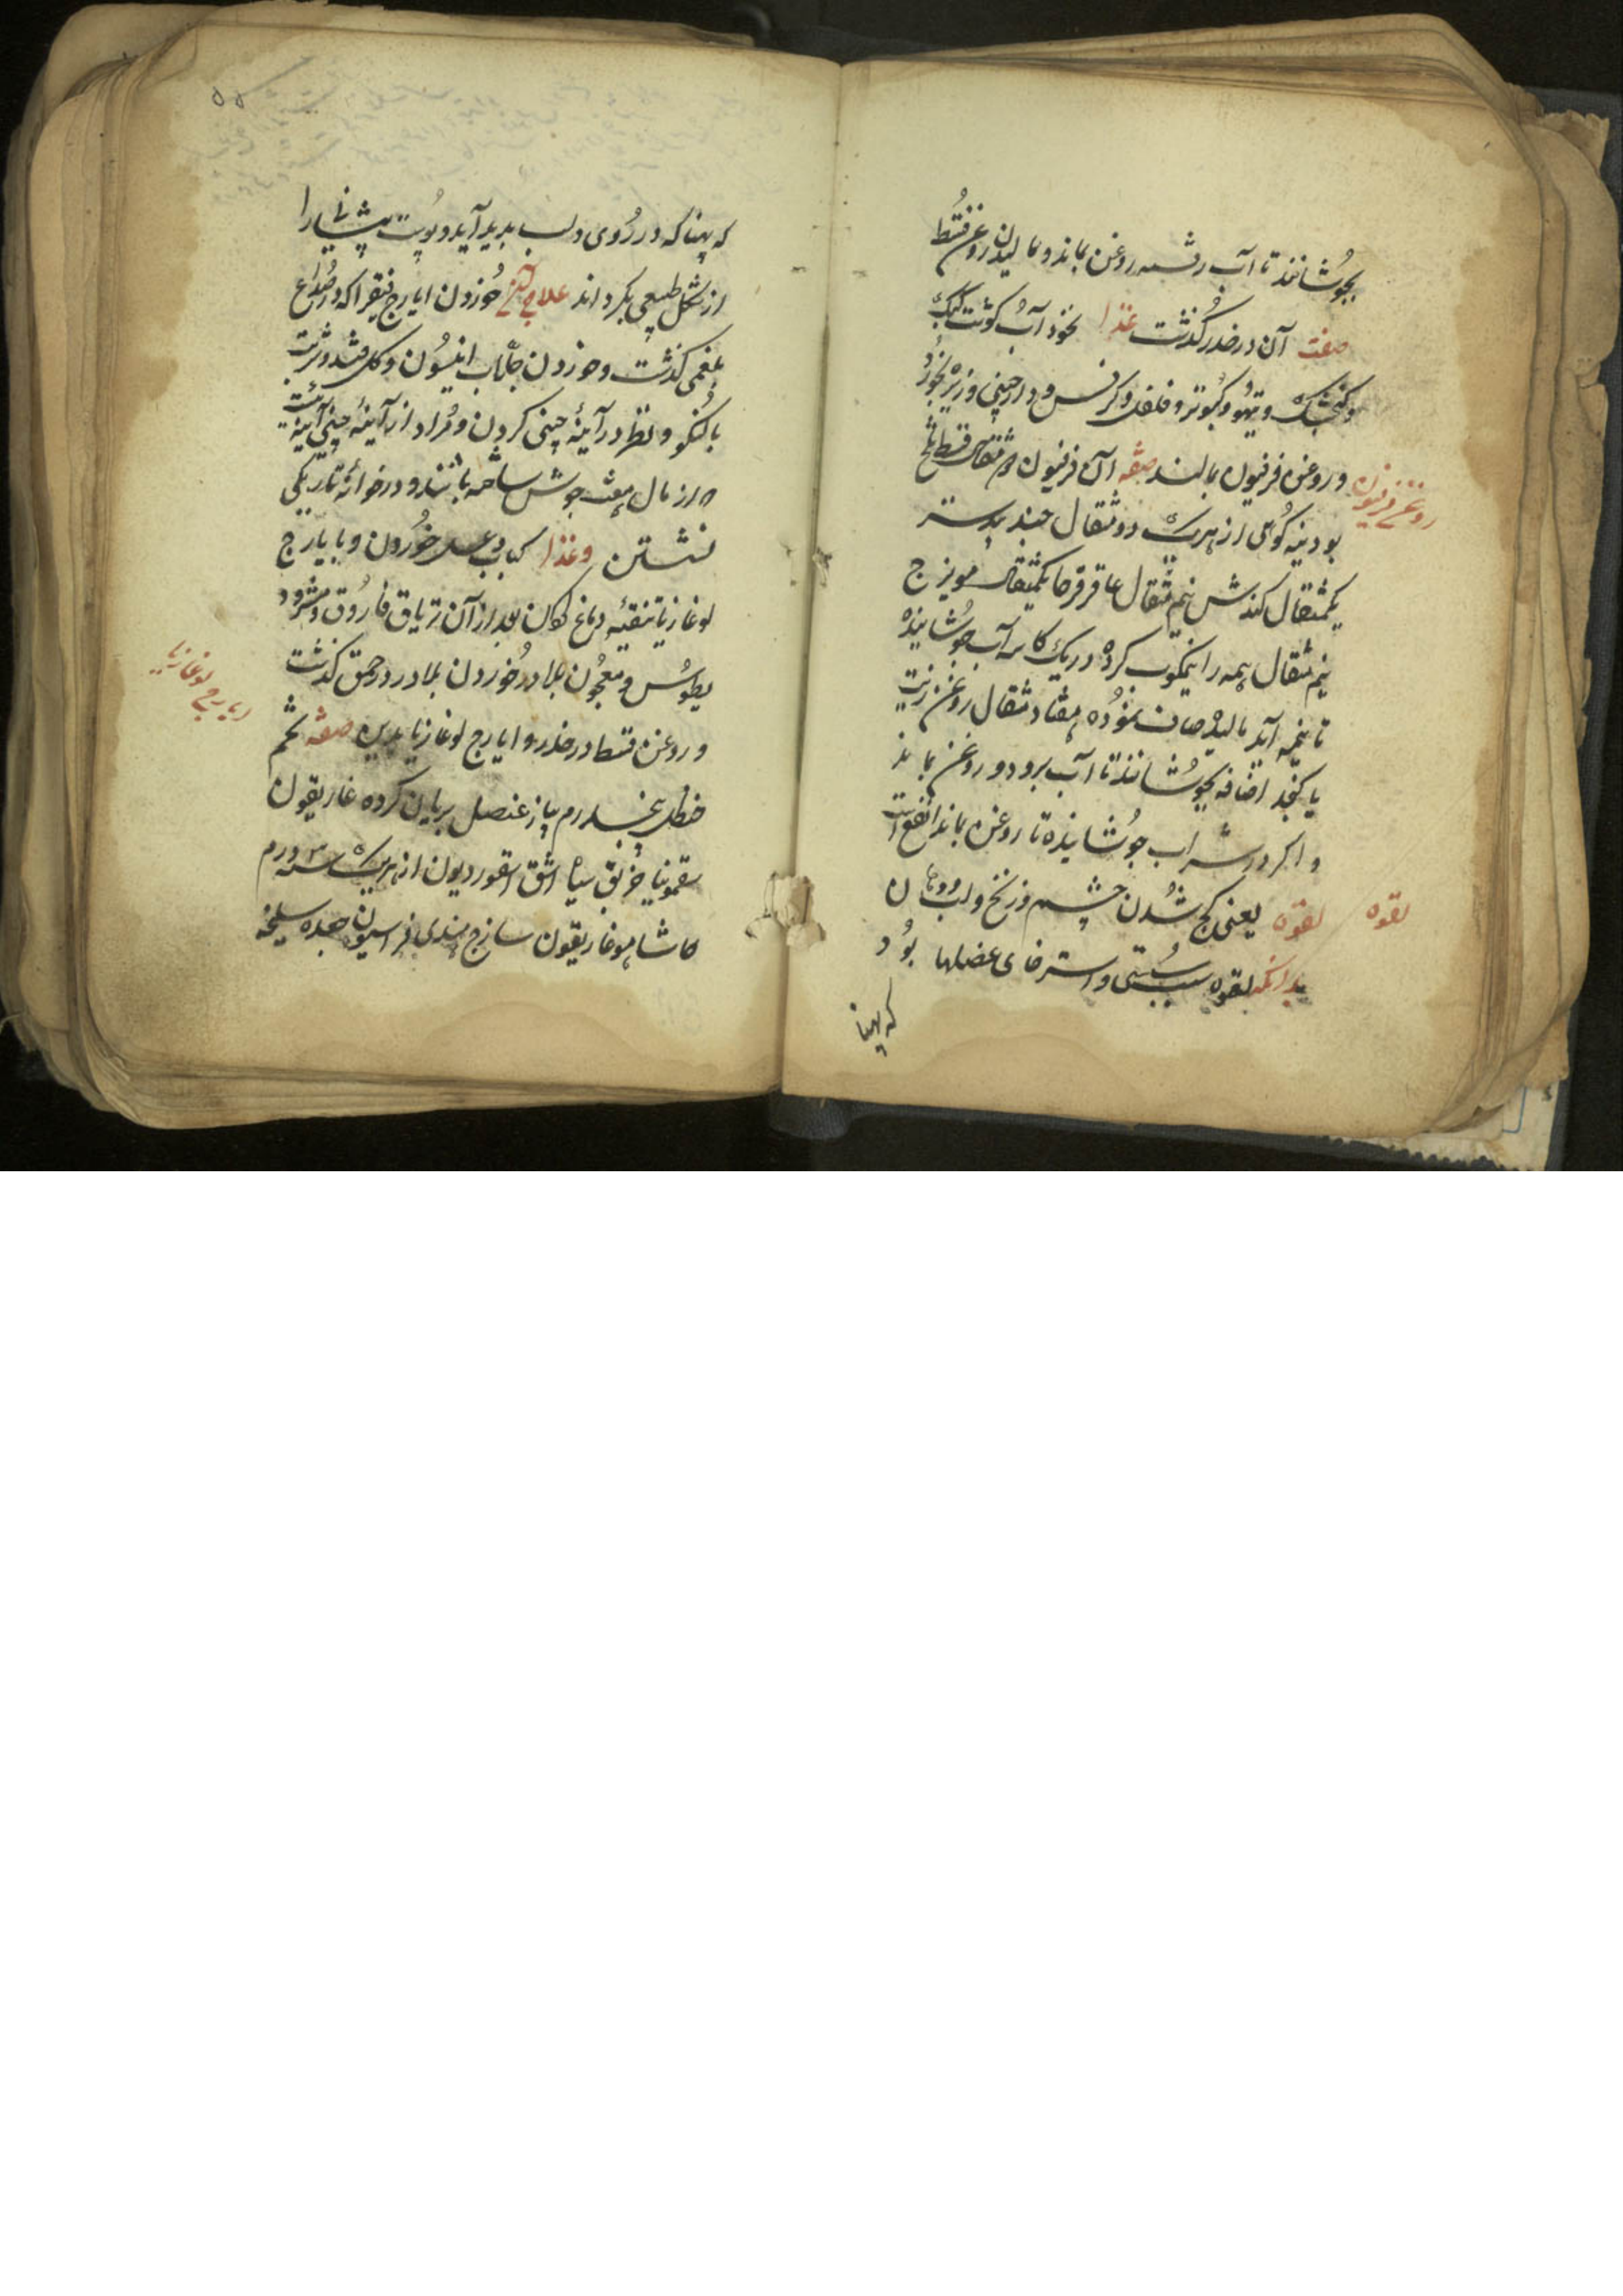 بجوشانند تا آب رفته روغن بماند و مالیدن روغن قسط
صفت آن در خدر گذشت غذا نخود آب گوشت کبک
و گنجشک و تیهو و کبوتر و فلفل و کرفس و دارچینی و زیره بخورد
و روغن فرفیون بمالند صفه آن فرفیون مثقال قسط تلخ
روغن فرفیون
بودینه کوهی از هریک دو مثقال جند بدستر
یکمثقال کندش نیم مثقال عاقرقرحا یکمثقال مویزج
نیم مثقال همه را نیمکوب کرده در یک کاسه آب جوشانیده
تا بنیمه آید مالیده صاف نموده هفتاد مثقال روغن زیت
یا کنجد اضافه بجوشانند تا آب برود و روغن بماند
و اگر در شراب جوشانیده تا روغن بماند انفع است
لقوه یعنی کج شدن چشم و زنخ و لب و دهان
لقوه
بدانکه لقوه بسبب سستی و استرخای عضلها بود
که پهنا
۵۵
که پهنا که در روی و لب بدید آید و پوست پیشانی را
از شکل طبیعی بکرداند علاج آن خوردن ایارج فیقرا که در صداع
بلغمی گذشت و خوردن جلاب انیسون و گل قند و شربت
با گنگو و نظر در آینهٔ چینی کردن و مراد از آینهٔ چینی آینهٔ
که از مال هفت جوش ساخته باشند و در خانهٔ تاریکی
نشستن وغذا کباب و عسل خوردن و با یارج
لوغازیا تنقیهٔ دماغ کردن بعد از آن تریاق فاروق و مثرود
یطوس و معجون بلادر خوردن بلادر در حمق گذشت
ایارج لوغازیا
و روغن قسط در خدر و ایارج لوغازیا بدین صفه شحم
حنظل پنجدرم پیاز عنصل بریان کرده غاریقون
سقمونیا خربق سیاه اشق اسقوردیون از هریک سه درم
کاشا هوفاریقون سازج هندی فراسیون جعده سلیخه